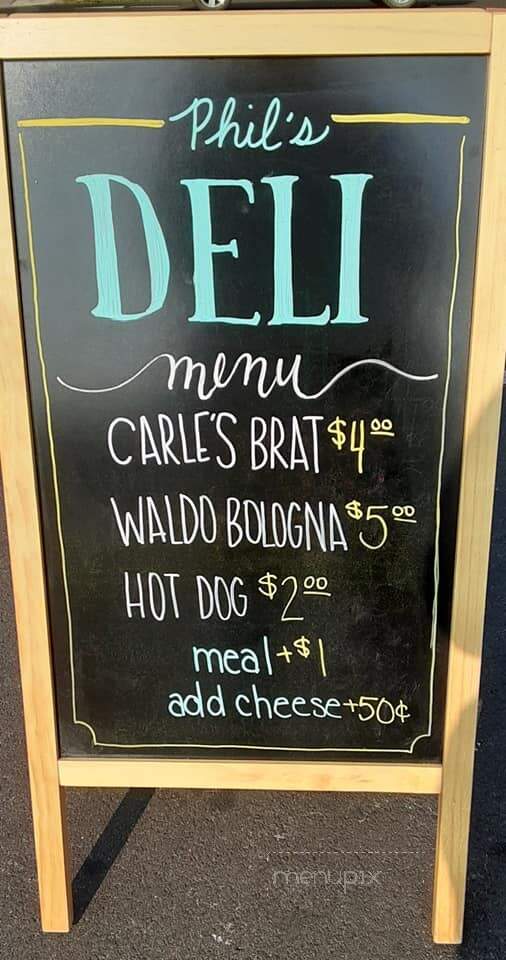 Phil's
DELI
menu
CARLE'S BRAT $4.00
WALDO BOLOGNA $5.00
HOT DOG $2.00
meal +$1
add cheese +50¢
menupix